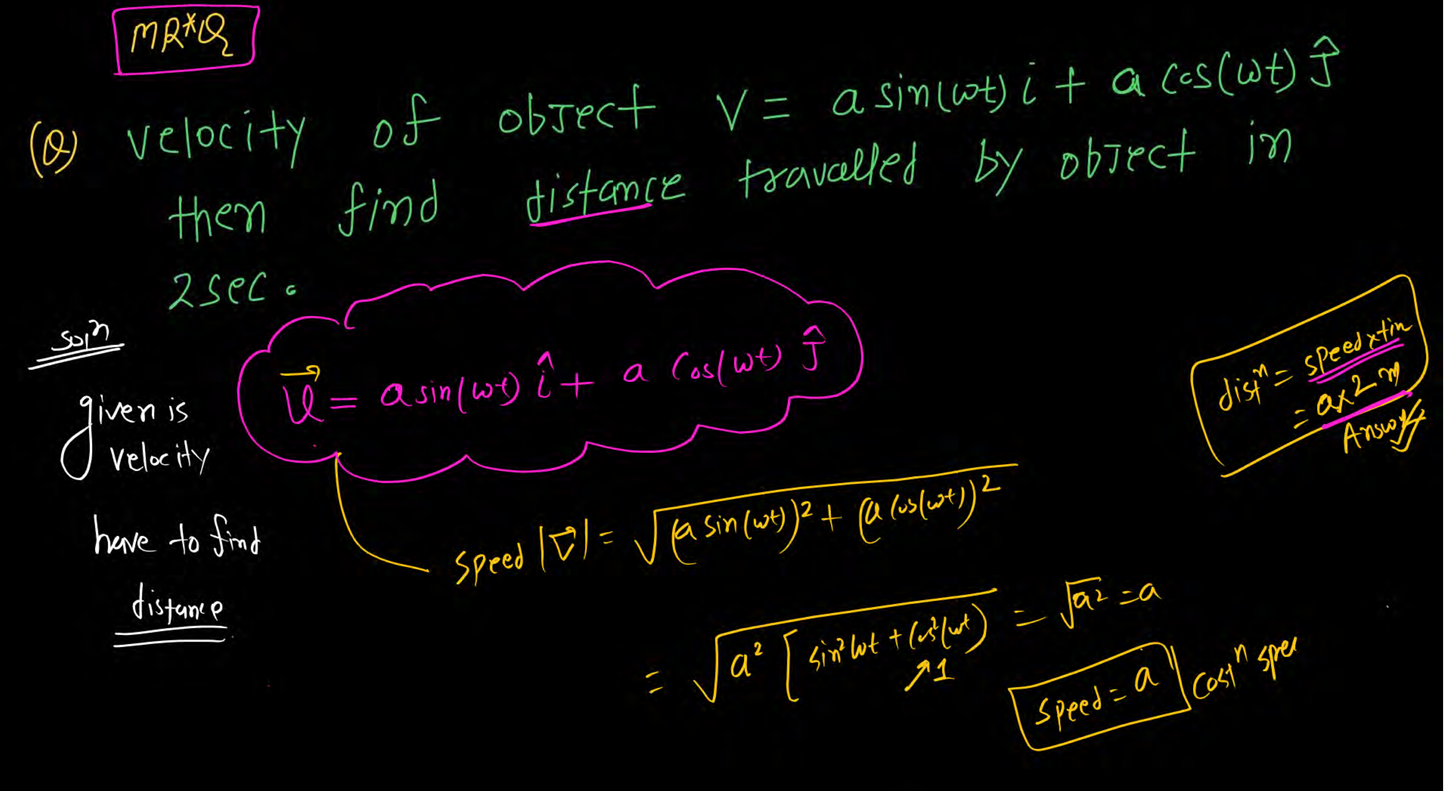 MR*Q
(Q) velocity of object V = a sin(ωt) i + a cos(ωt) Ĵ
then find distance travalled by object in
2 sec.
solⁿ
given is
velocity
have to find
distance
v⃗ = a sin(ωt) î + a cos(ωt) Ĵ
speed |v⃗| = √((a sin(ωt))² + (a cos(ωt))²)
= √(a² [sin²ωt + cos²(ωt)) = √a² = a
↗1
speed = a | costⁿ spee
distⁿ = speed x tim
= a x 2 m
Answer